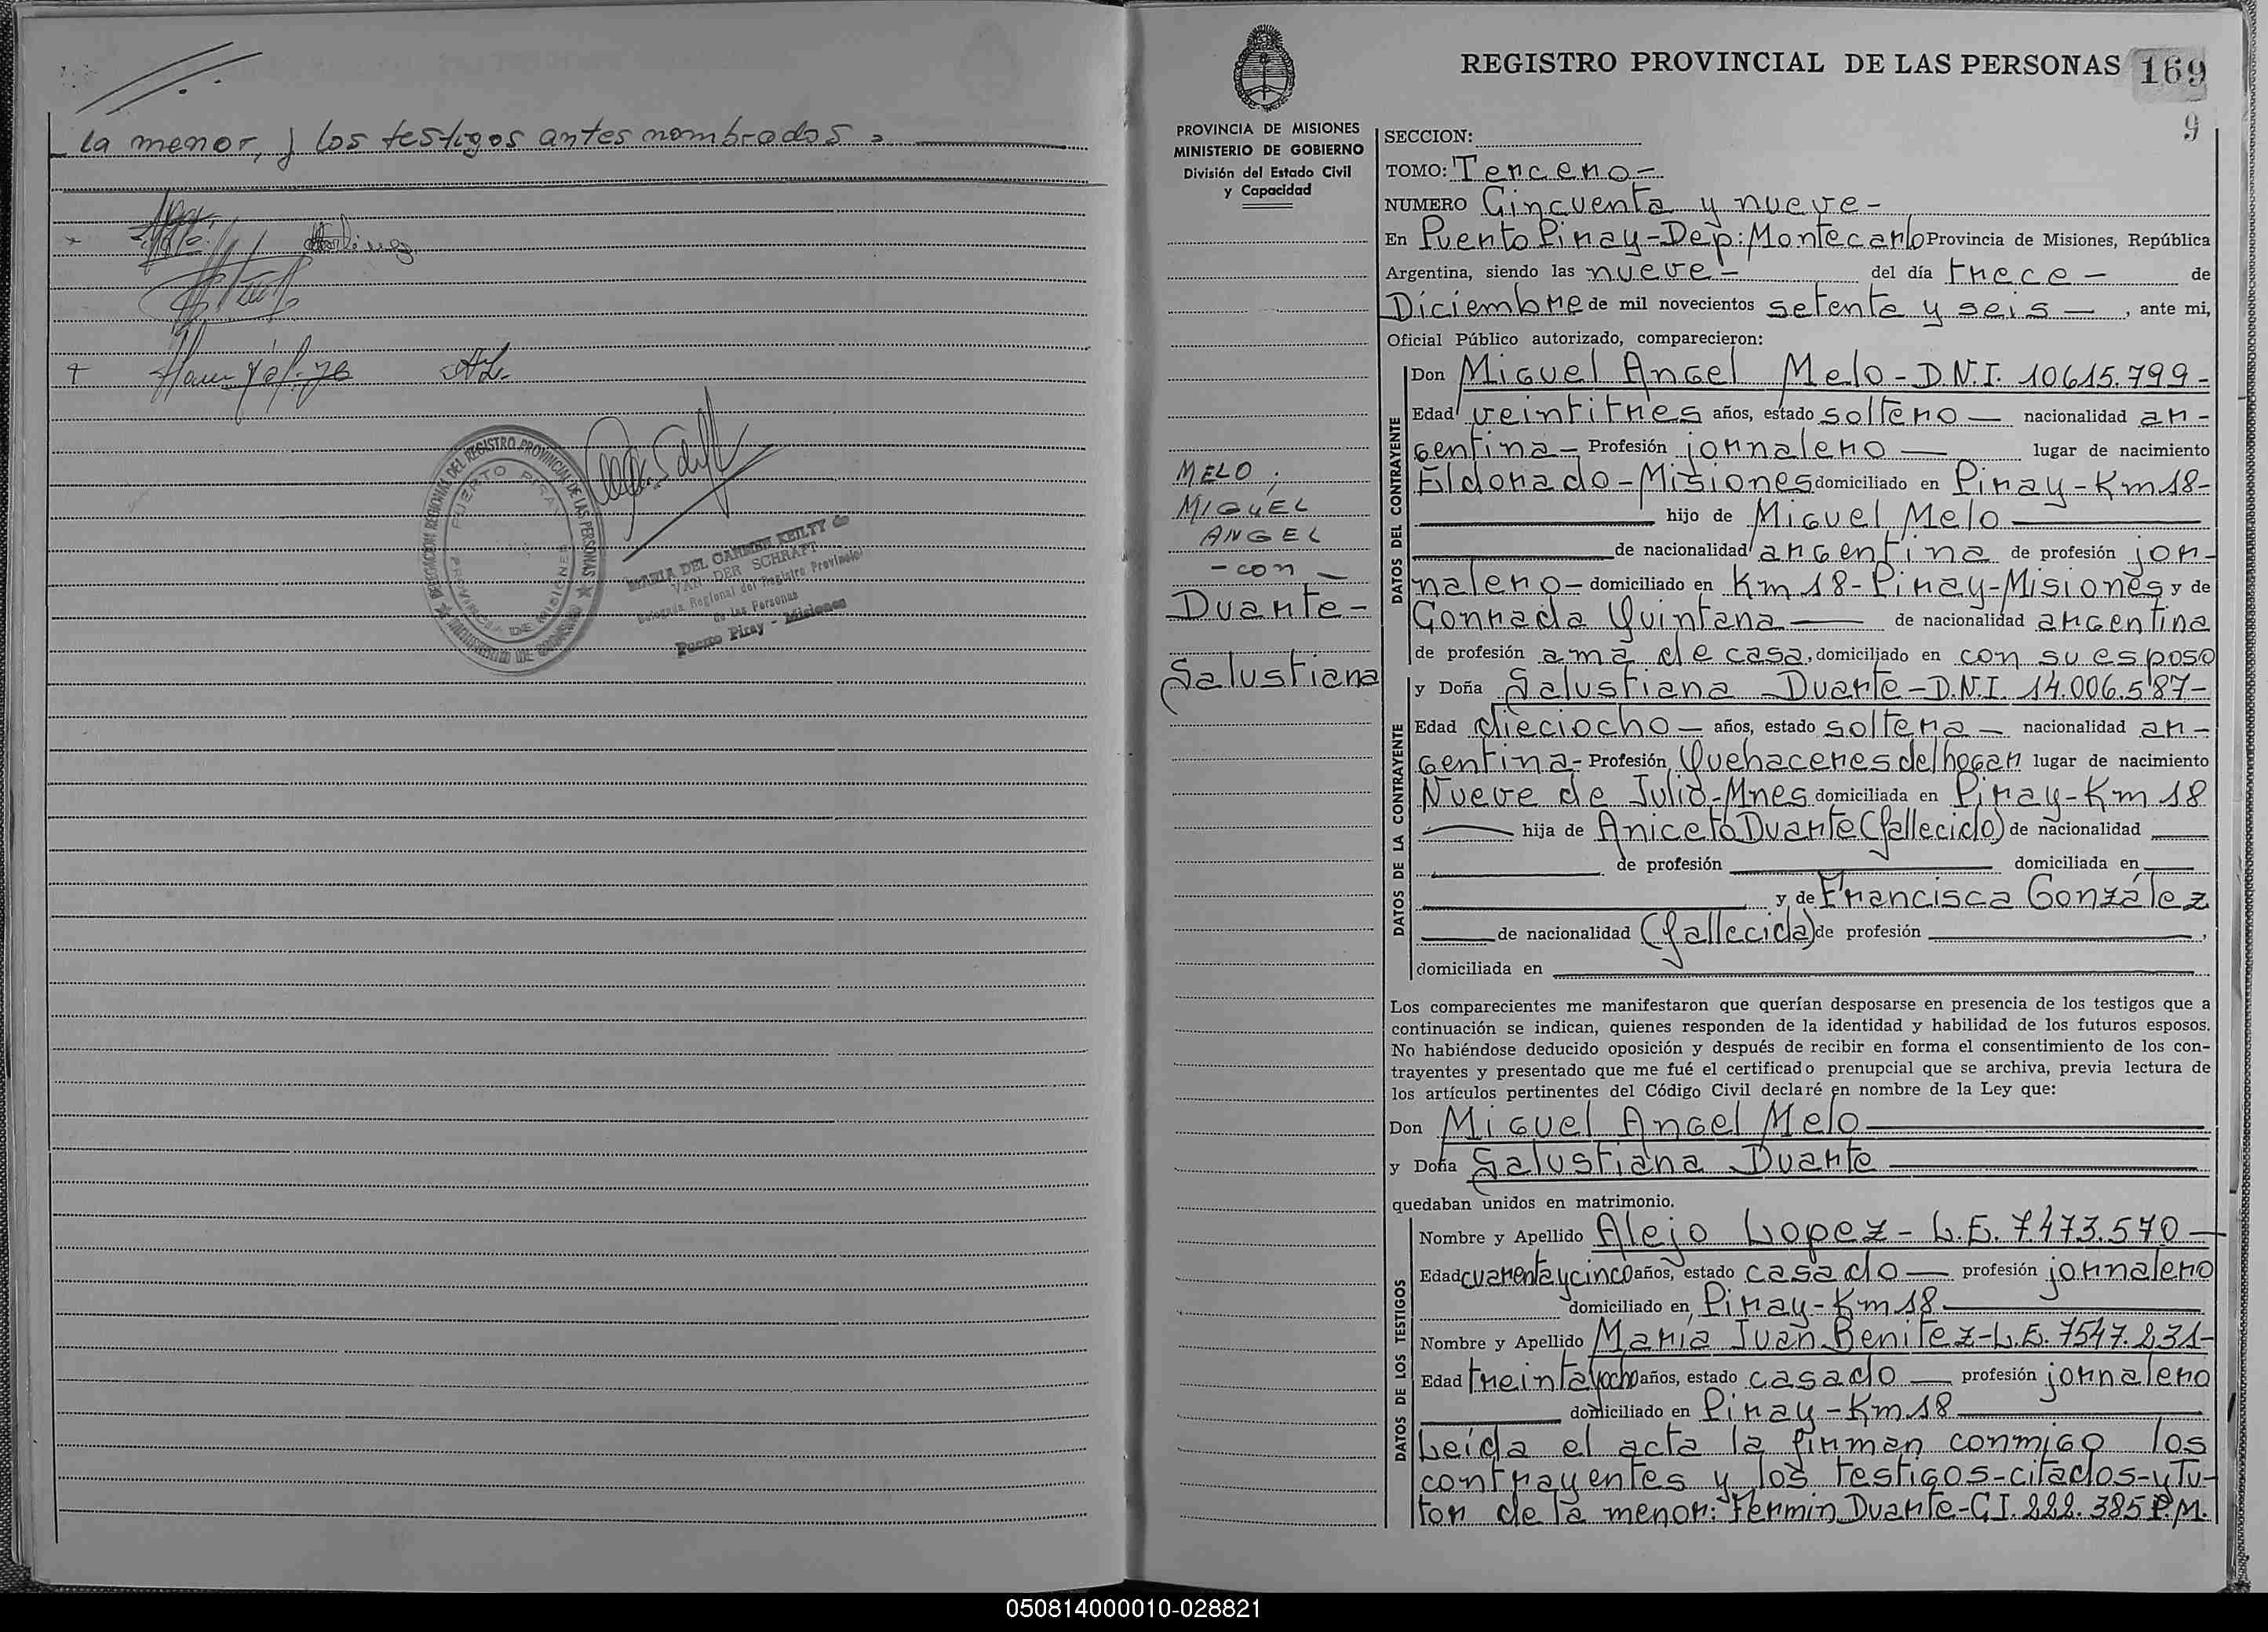 la menor, y los testigos antes nombrados.
DELEGACION REGIONAL DEL REGISTRO PROVINCIAL DE LAS PERSONAS
MINISTERIO DE GOBIERNO
PUERTO PIRAY
PROVINCIA DE MISIONES
MARIA DEL CARMEN KEILTY de
VAN DER SCHRAFT
Delegada Regional del Registro Provincial
de las Personas
Puerto Piray - Misiones
REGISTRO PROVINCIAL DE LAS PERSONAS 169
9
PROVINCIA DE MISIONES
MINISTERIO DE GOBIERNO
División del Estado Civil
y Capacidad
MELO,
MIGUEL
ANGEL
- con -
Duarte-
Salustiana
SECCION:
TOMO: Tercero-
NUMERO Cincuenta y nueve-
En Puerto Piray-Dep: Montecarlo Provincia de Misiones, República
Argentina, siendo las nueve- del día trece- de
Diciembre de mil novecientos setenta y seis-, ante mi,
Oficial Público autorizado, comparecieron:
DATOS DEL CONTRAYENTE
Don Miguel Angel Melo-D.N.I. 10615.799-
Edad veintitres años, estado soltero- nacionalidad ar-
gentina- Profesión jornalero- lugar de nacimiento
Eldorado-Misiones domiciliado en Piray-Km 18-
hijo de Miguel Melo
de nacionalidad argentina de profesión jor-
nalero- domiciliado en Km 18-Piray-Misiones y de
Corrada Quintana de nacionalidad argentina
de profesión ama de casa, domiciliado en con su esposo
DATOS DE LA CONTRAYENTE
y Doña Salustiana Duarte-D.N.I. 14.006.587-
Edad dieciocho- años, estado soltera- nacionalidad ar-
gentina- Profesión Quehaceres del hogar lugar de nacimiento
Nueve de Julio-Mnes domiciliada en Piray-Km 18
hija de Aniceto Duarte (fallecido) de nacionalidad
de profesión domiciliada en
y de Francisca González
de nacionalidad (fallecida) de profesión ,
domiciliada en
Los comparecientes me manifestaron que querían desposarse en presencia de los testigos que a
continuación se indican, quienes responden de la identidad y habilidad de los futuros esposos.
No habiéndose deducido oposición y después de recibir en forma el consentimiento de los con-
trayentes y presentado que me fué el certificado prenupcial que se archiva, previa lectura de
los artículos pertinentes del Código Civil declaré en nombre de la Ley que:
Don Miguel Angel Melo
y Doña Salustiana Duarte
quedaban unidos en matrimonio.
DATOS DE LOS TESTIGOS
Nombre y Apellido Alejo Lopez-L.E. 7.473.570-
Edad cuarenta y cinco años, estado casado- profesión jornalero
domiciliado en Piray-Km 18
Nombre y Apellido María Juan Benitez-L.E. 7547.231-
Edad treinta y ocho años, estado casado- profesión jornalero
domiciliado en Piray-Km 18
Leída el acta la firman conmigo los
contrayentes y los testigos-citados-y Tu-
tor de la menor: Fermin Duarte-C.I. 222.385 P.M.
050814000010-028821